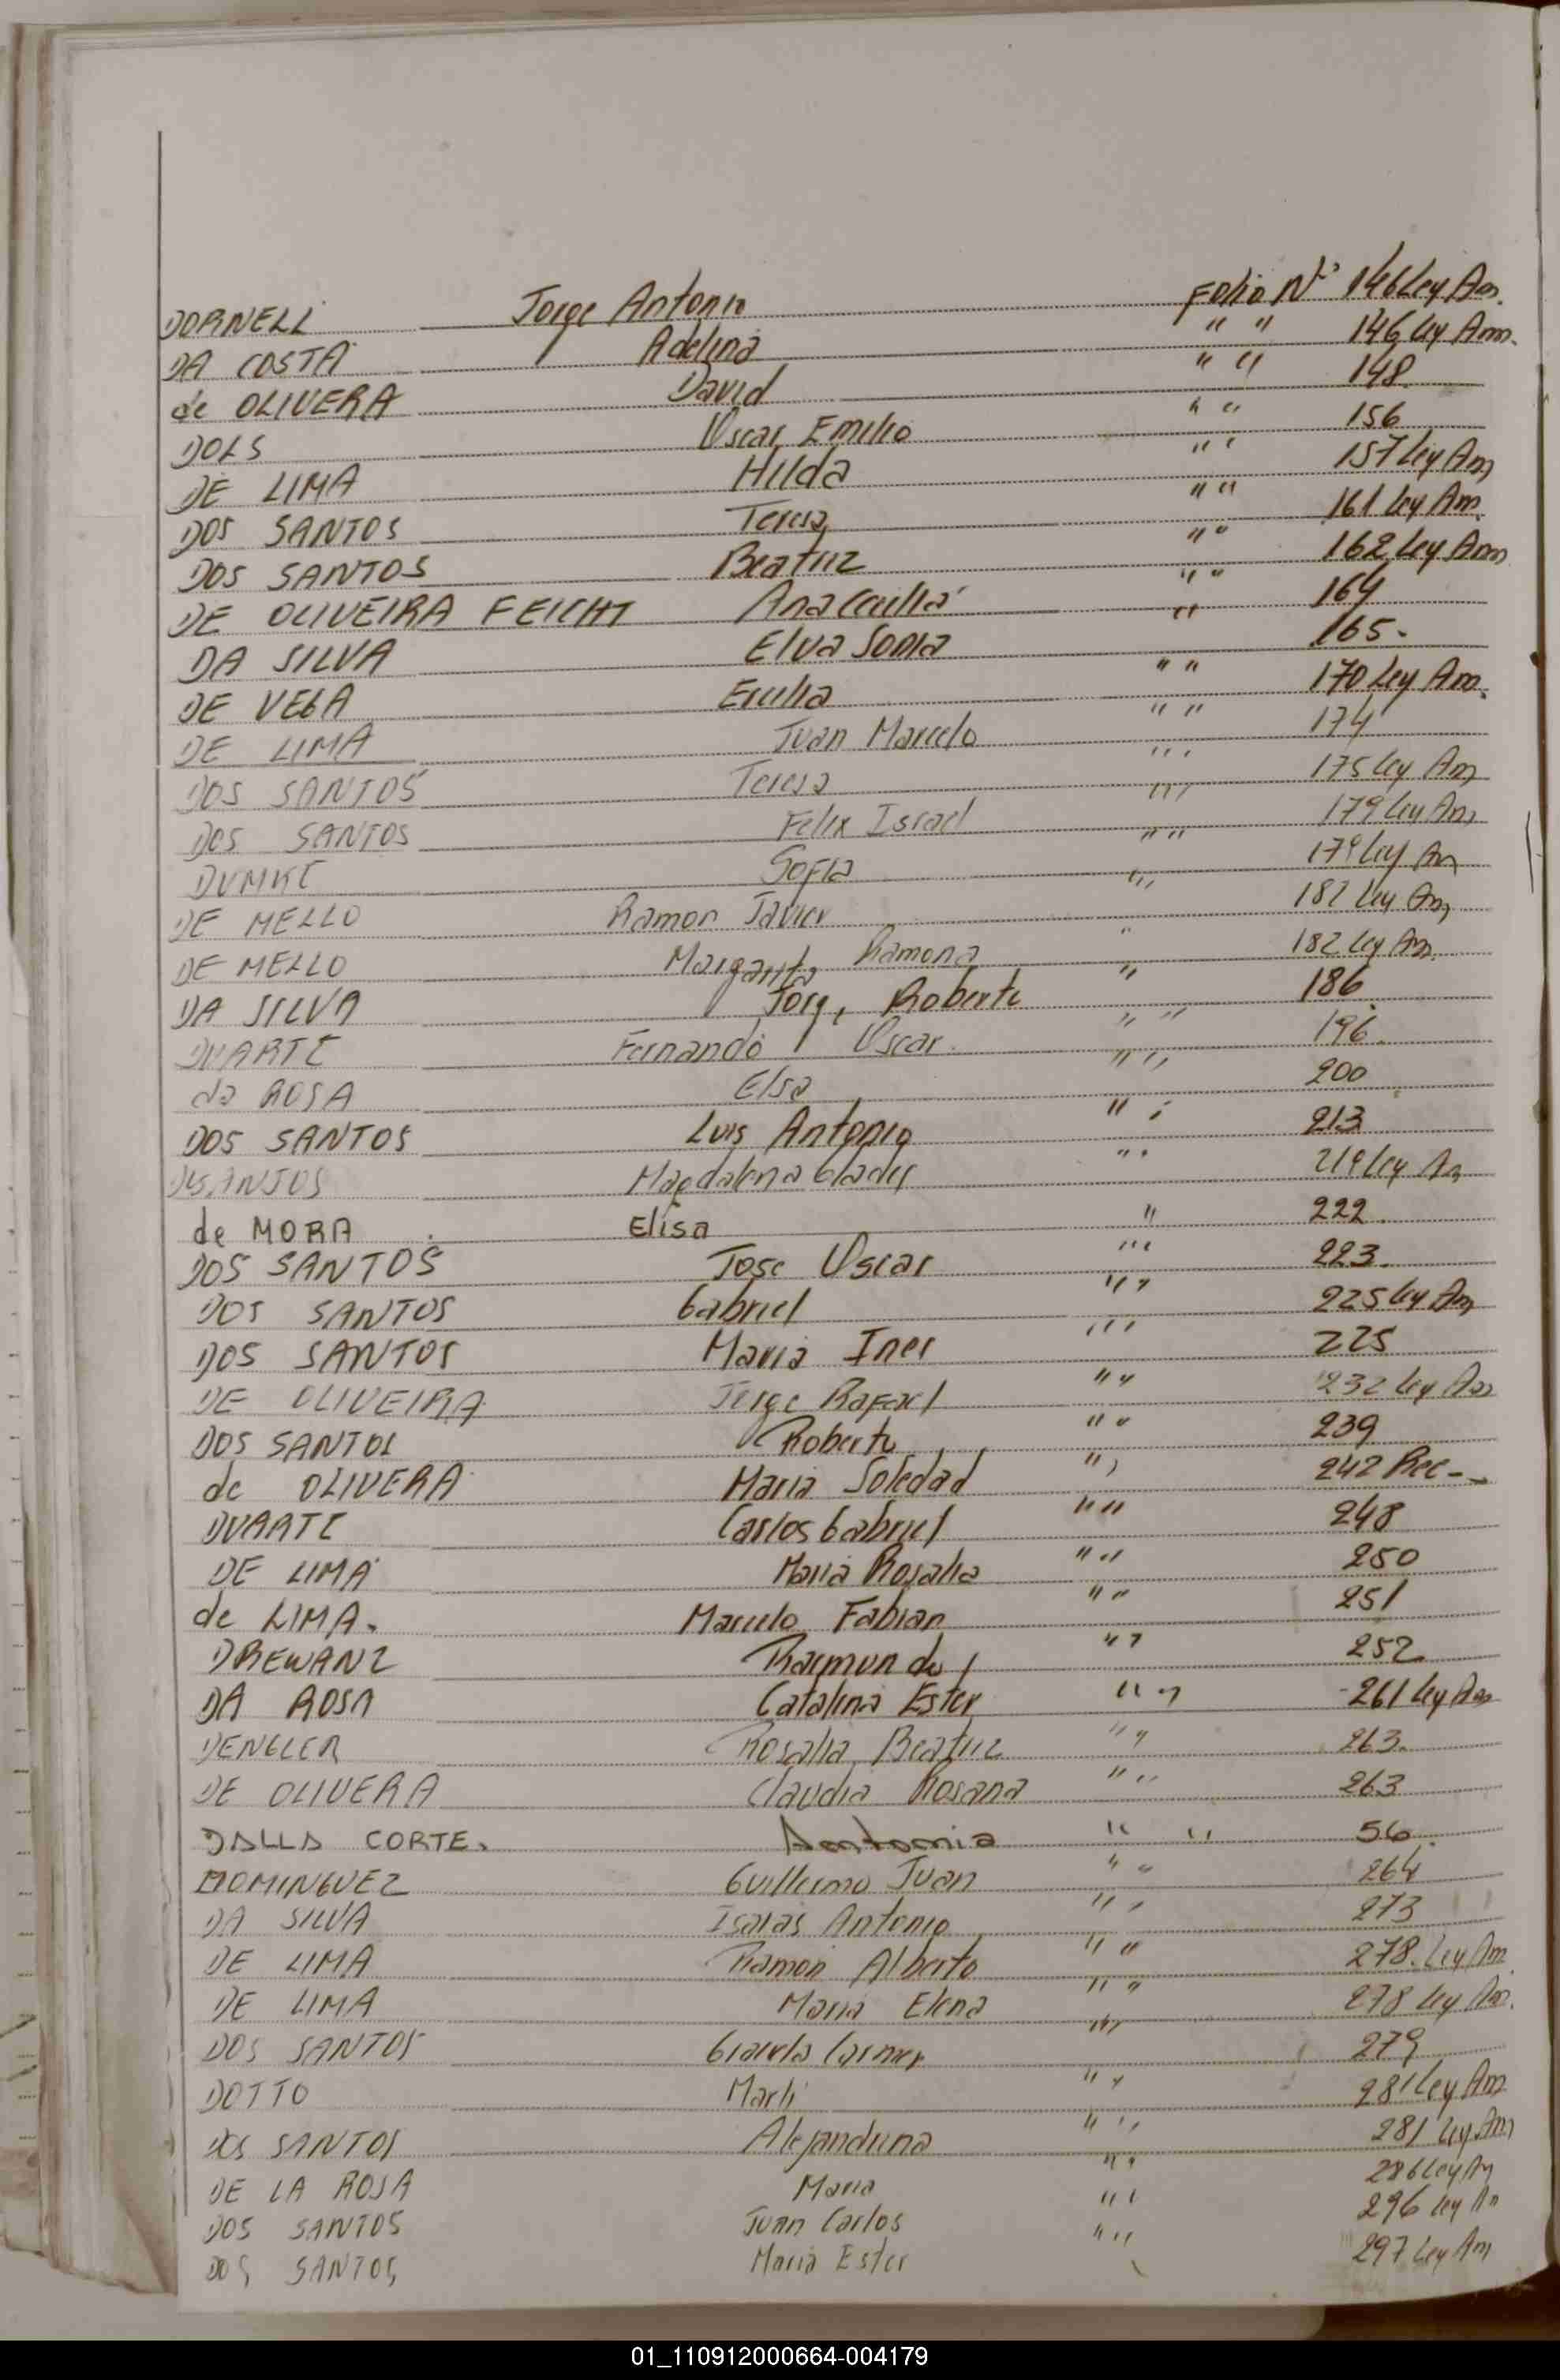 DORNELL Jorge Antonio Folio Nº 146 Ley Am.
DA COSTA Adelina " " 146 Ley Am.
de OLIVERA David " " 148
DOLS Oscar Emilio " " 156
DE LIMA Hilda " " 157 Ley Am
DOS SANTOS Teresa " " 161 Ley Am.
DOS SANTOS Beatriz " " 162 Ley Am
DE OLIVEIRA FEICHT Ana " " 164
DA SILVA Elva Sonia " 165.
DE VEGA " " 170 Ley Am.
DE LIMA Juan Marcelo " " 174
DOS SANTOS Teresa " " 175 Ley Am
DOS SANTOS Felix Israel " " 179 Ley Am
DUMKE Sofia " " 179 Ley Am
DE MELLO Ramon Javier " " 182 Ley Am
DE MELLO Margarita Ramona " 182 Ley Am.
DA SILVA Jorge Roberto " 186.
DUARTE Fernando Oscar " " 196.
da ROSA Elsa " " 200
DOS SANTOS Luis Antonio " " 213
Magdalena Glades " " 219 Ley Am
de MORA Elisa " 222.
DOS SANTOS Jose Oscar " " 223.
DOS SANTOS Gabriel " " 225 Ley Am
DOS SANTOS Maria Ines " " 225
DE OLIVEIRA Jorge Rafael " " 232 Ley Am
DOS SANTOS Roberto " " 239
de OLIVERA Maria Soledad " " 242 Rec-
DUARTE Carlos Gabriel " " 248
DE LIMA Maria Rosalia " " 250
de LIMA. Marcelo Fabian " " 251
DREWANZ Raymundo " " 252
DA ROSA Catalina Ester " " 261 Ley Am
DENGLER Rosalia Beatriz " " 263.
DE OLIVERA Claudia Rosana " " 263
DALLA CORTE. Antonia " " 56.
DOMINGUEZ Guillermo Juan " " 264
DA SILVA Isaias Antonio " " 273
DE LIMA Ramon Alberto " " 278. Ley Am
DE LIMA Maria Elena " " 278 Ley Am.
DOS SANTOS Graciela Carmen " " 279
DOTTO Marli " " 281 Ley Am
DOS SANTOS Alejandrina " " 281 Ley Am
DE LA ROSA Maria " " 286 Ley Am
DOS SANTOS Juan Carlos " " 296 Ley Am
DOS SANTOS Maria Ester " " 297 Ley Am
01_110912000664-004179